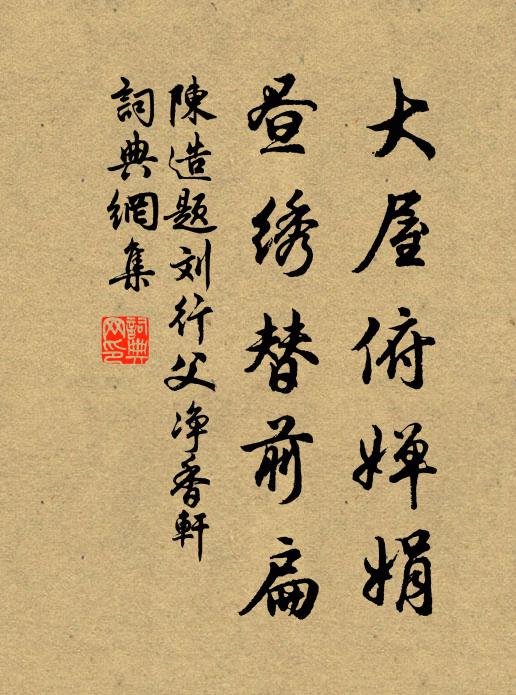 大屋俯婵娟
昼绣替前扁
陳造题刘行父净香軒
詞典網集
詞典网印